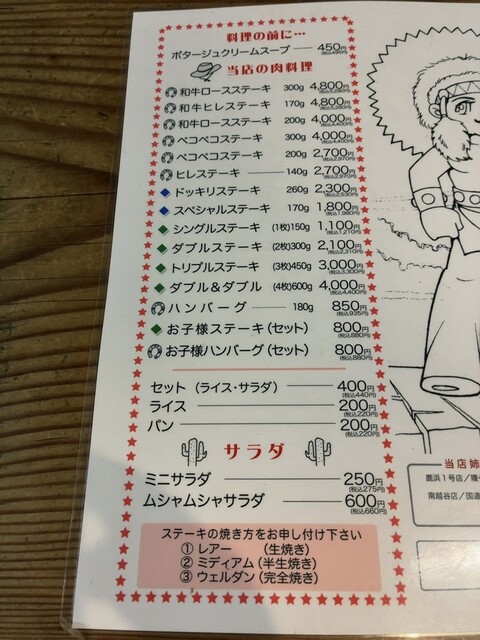 料理の前に…
ポタージュクリームスープ 450円
(税込495円)
当店の肉料理
和牛ロースステーキ 300g 4,800円
(税込5,280円)
和牛ヒレステーキ 170g 4,800円
(税込5,280円)
和牛ロースステーキ 200g 4,000円
(税込4,400円)
ペコペコステーキ 300g 4,000円
(税込4,400円)
ペコペコステーキ 200g 2,700円
(税込2,970円)
ヒレステーキ 140g 2,700円
(税込2,970円)
ドッキリステーキ 260g 2,300円
(税込2,530円)
スペシャルステーキ 170g 1,800円
(税込1,980円)
シングルステーキ (1枚)150g 1,100円
(税込1,210円)
ダブルステーキ (2枚)300g 2,100円
(税込2,310円)
トリプルステーキ (3枚)450g 3,000円
(税込3,300円)
ダブル&ダブル (4枚)600g 4,000円
(税込4,400円)
ハンバーグ 180g 850円
(税込935円)
お子様ステーキ(セット) 800円
(税込880円)
お子様ハンバーグ(セット) 800円
(税込880円)
セット (ライス・サラダ) 400円
(税込440円)
ライス 200円
(税込220円)
パン 200円
(税込220円)
サラダ
ミニサラダ 250円
(税込275円)
ムシャムシャサラダ 600円
(税込660円)
ステーキの焼き方をお申し付け下さい
① レアー (生焼き)
② ミディアム (半生焼き)
③ ウェルダン (完全焼き)
当店姉
鹿浜1号店/環
南越谷店/国道